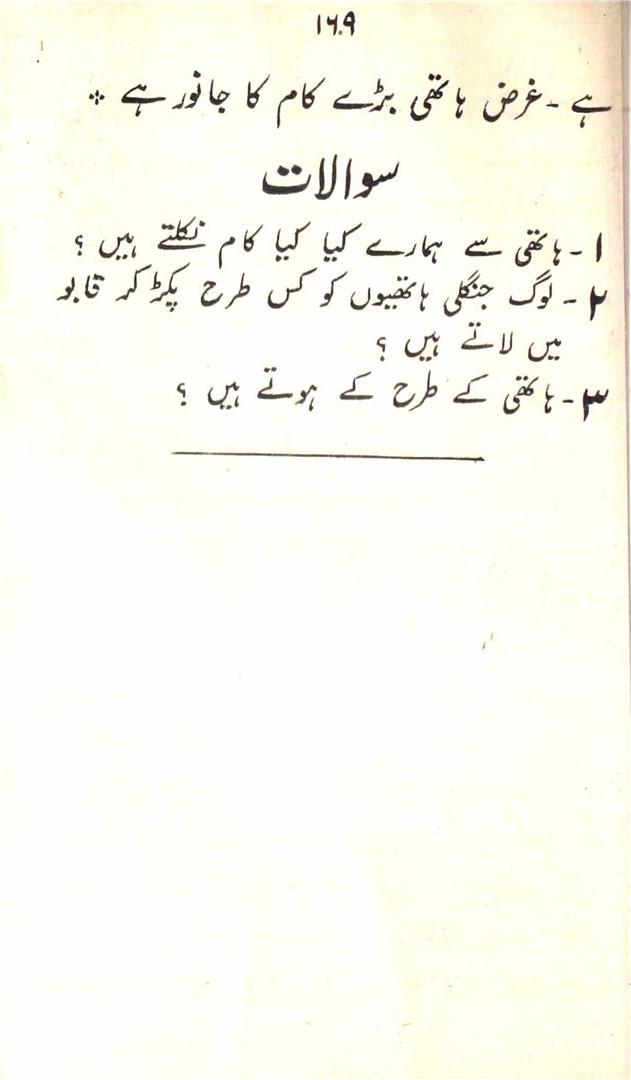 ۱۶۹
ہے ۔ غرض ہاتھی بڑے کام کا جانور ہے ⁘
سوالات
۱ ۔ ہاتھی سے ہمارے کیا کیا کام نکلتے ہیں ؟
۲ ۔ لوگ جنگلی ہاتھیوں کو کس طرح پکڑ کر قابو
میں لاتے ہیں ؟
۳ ۔ ہاتھی کے طرح کے ہوتے ہیں ؟